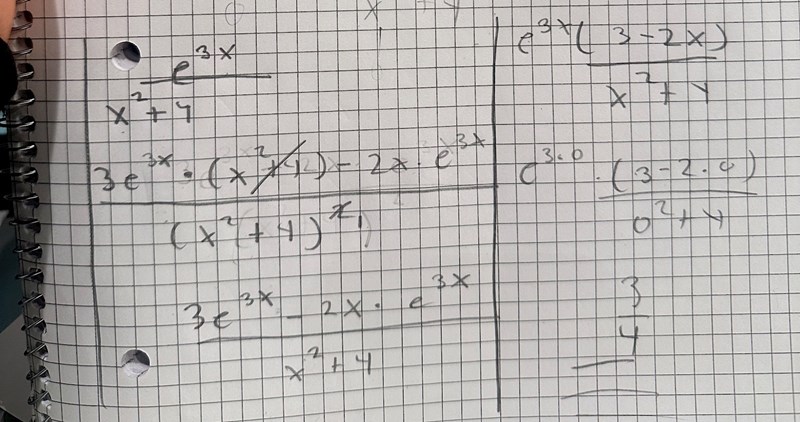 e^3x
x^2+4
3e^3x · (x^2+4) - 2x · e^3x
(x^2+4)^2
3e^3x - 2x · e^3x
x^2+4
e^3x (3-2x)
x^2+4
e^3·0 · (3-2·0)
0^2+4
3
4